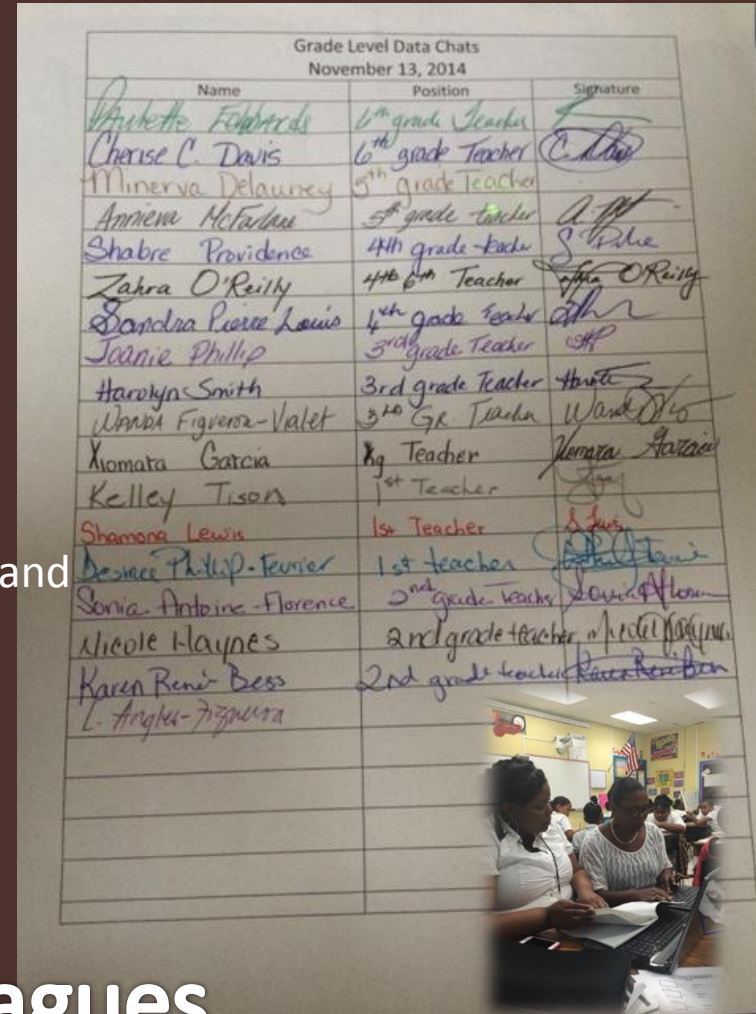 Grade Level Data Chats
November 13, 2014
Name Position Signature
6th grade Teacher
Cherise C. Davis 6th grade Teacher C. Davis
Minerva Delauney 5th grade Teacher
Annieva McFarlane 5th grade teacher
Shabre Providence 4th grade teacher
Zahra O'Reilly 4th 6th Teacher O'Reilly
Sandra Pierre Louis 4th grade Teacher
Joanie Phillip 3rd grade Teacher
Harolyn Smith 3rd grade Teacher
Wanda Figueroa-Vialet 3rd GR. Teacher
Xiomara Garcia Kg Teacher Xiomara Garcia
Kelley Tison 1st Teacher
Shamona Lewis 1st Teacher
and
Desiree Phillip-Fevrier 1st teacher
Sonia Antoine-Florence 2nd grade Teacher
Nicole Haynes 2nd grade teacher
Karen René-Bess 2nd grade teacher
L.
agues